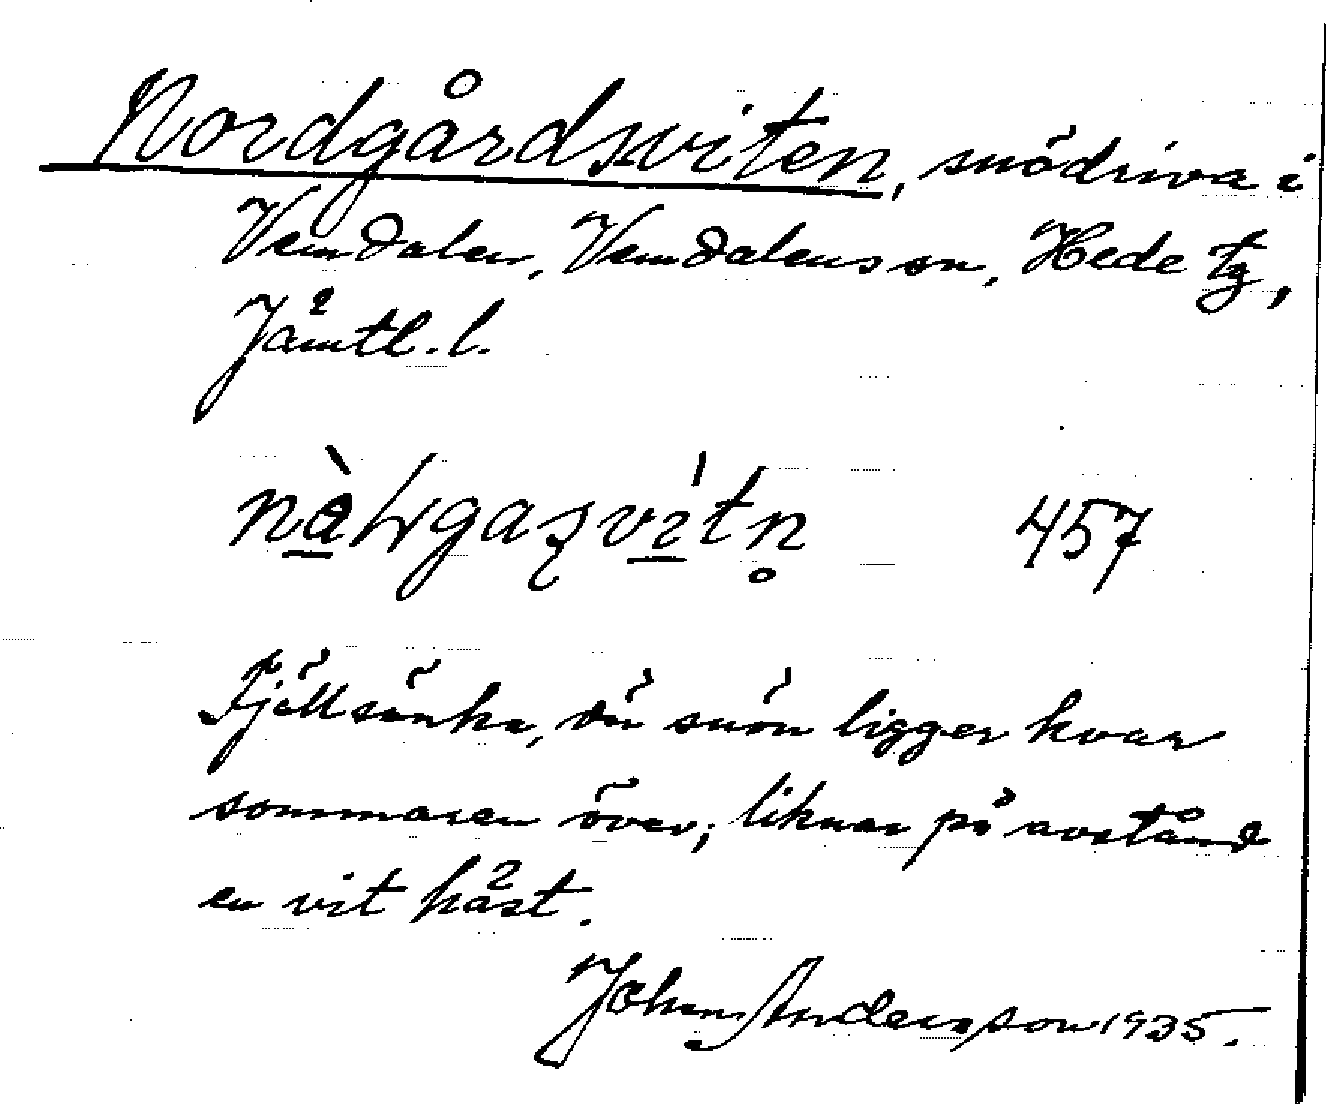 Nordgårdsviten, snödriva i
Vemdalen, Vemdalens sn, Hede tg,
Jämtl. l.
457
Fjällsänka, där snön ligger kvar
sommaren över; liknar på avstånd
en vit häst.
Johan Andersson 1935.